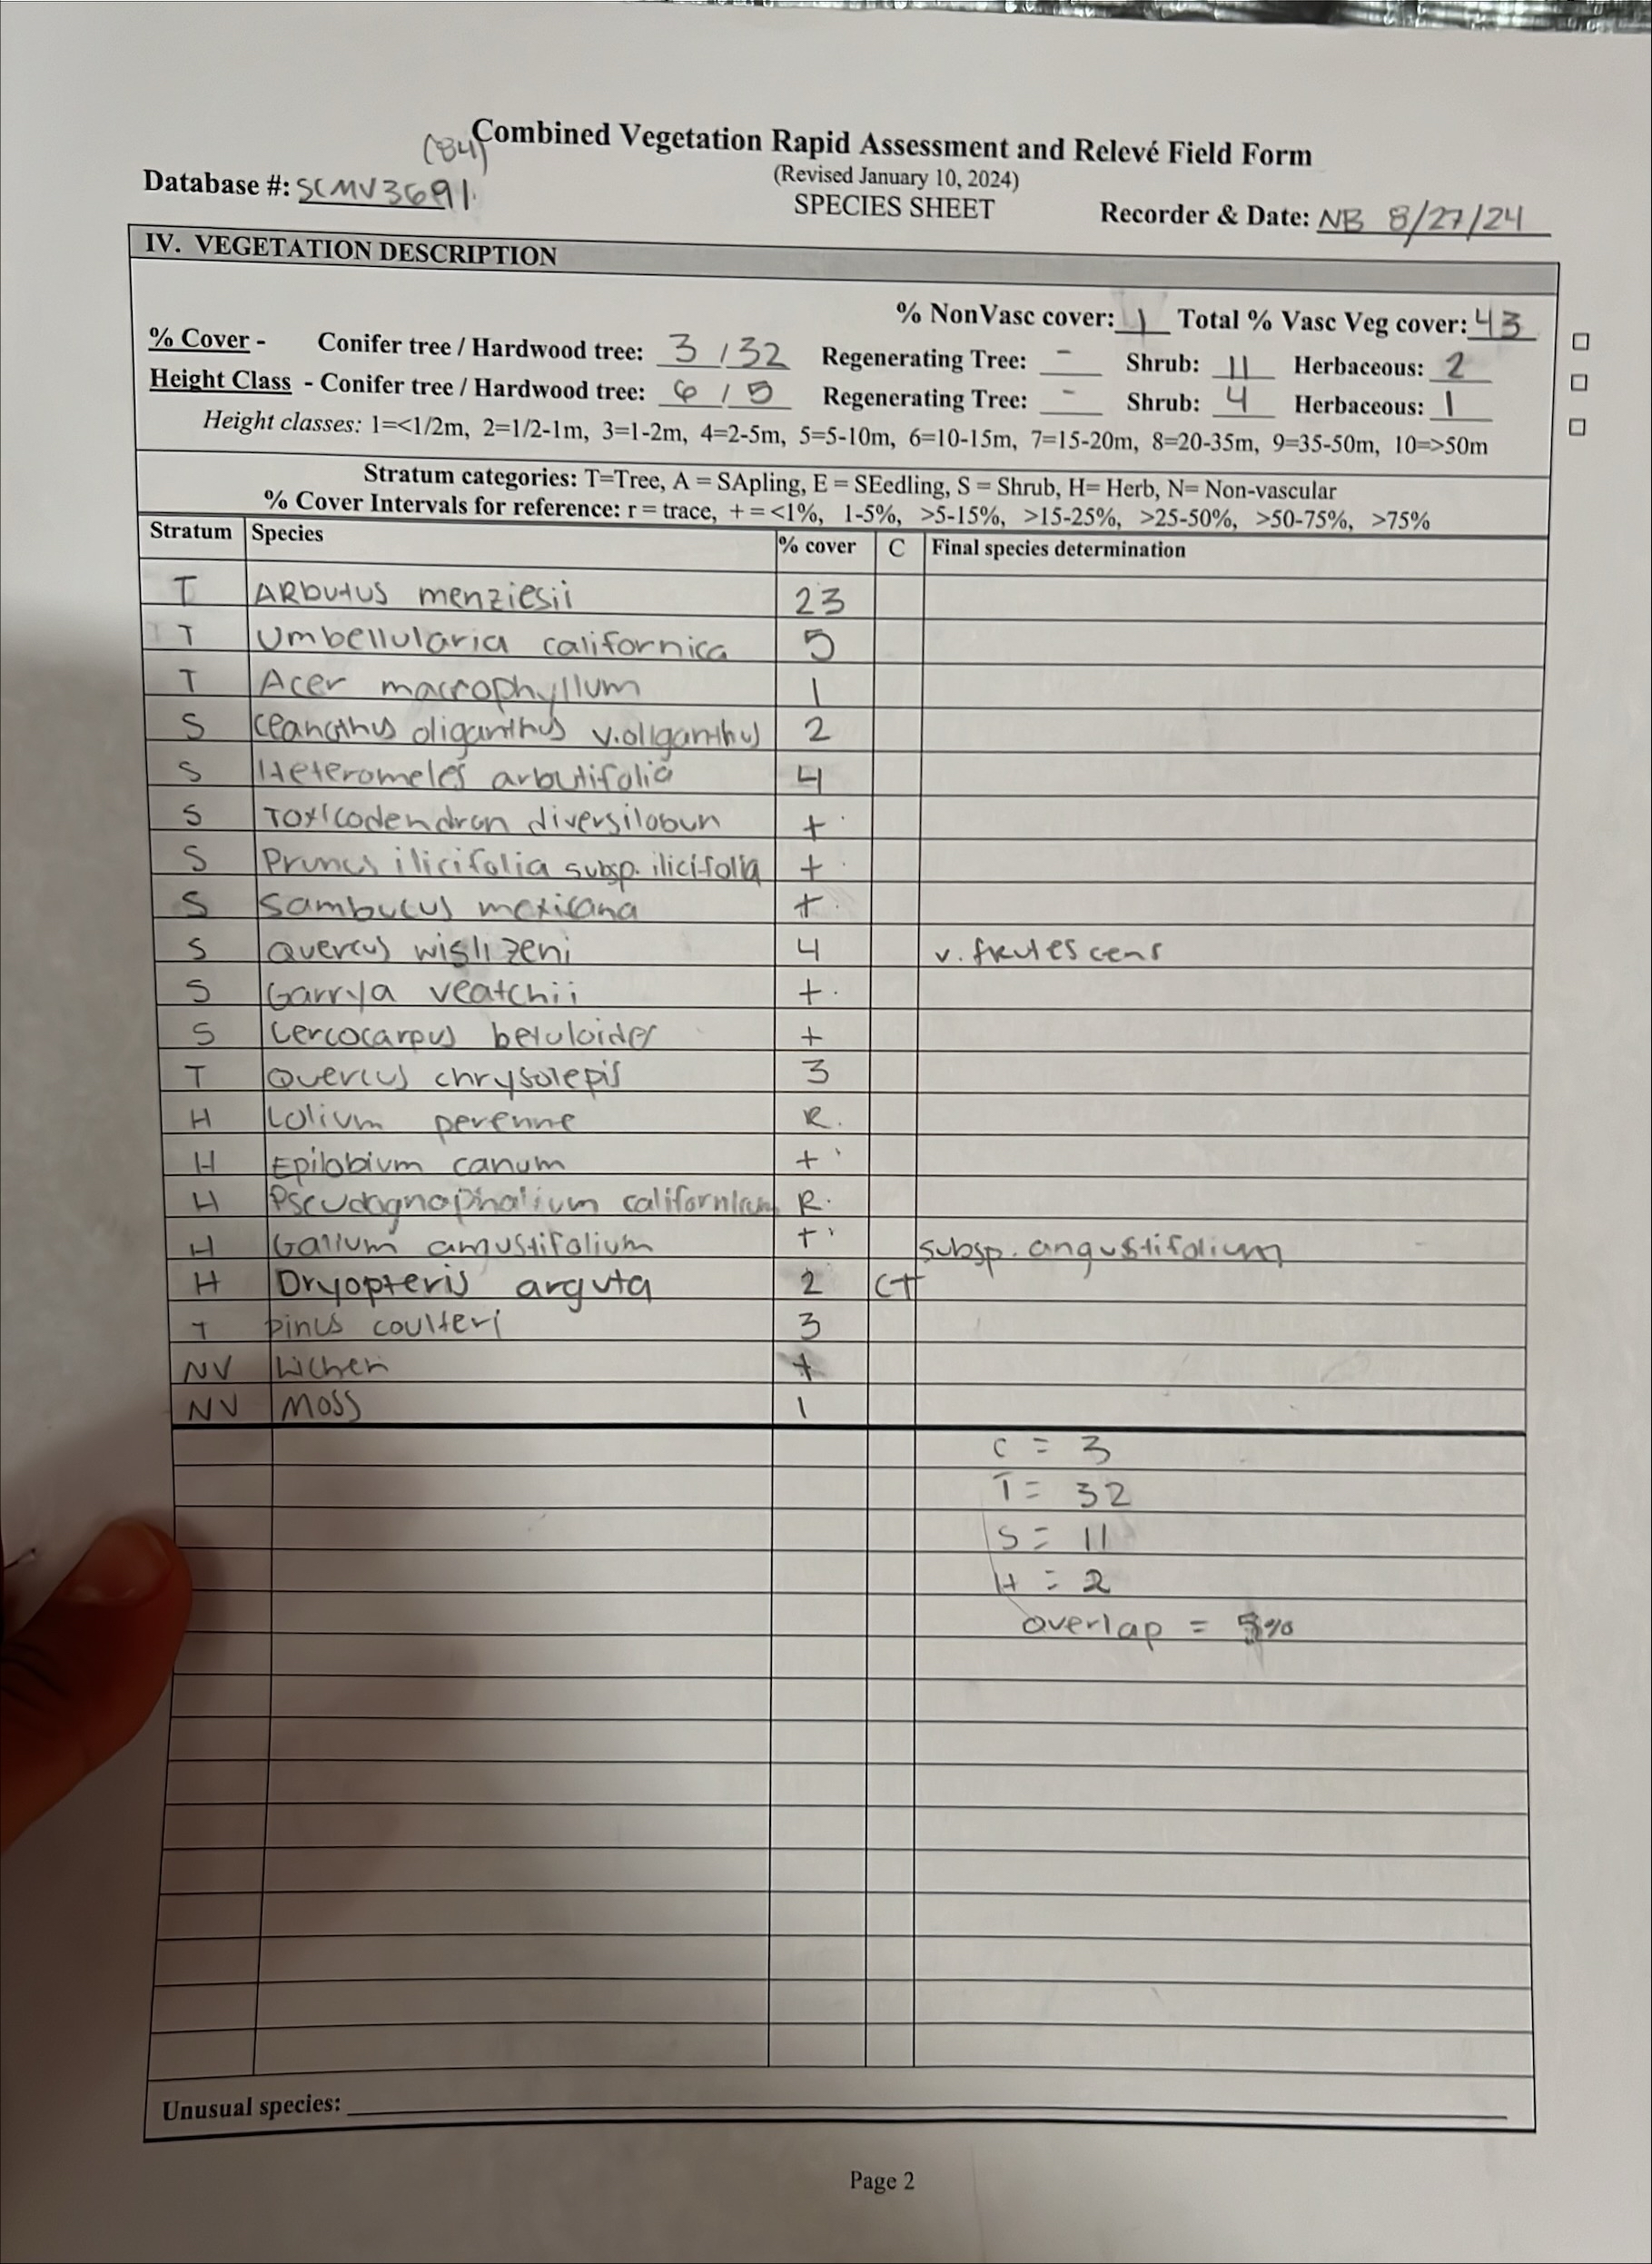 (84)
Combined Vegetation Rapid Assessment and Relevé Field Form
(Revised January 10, 2024)
Database #: SCMV3691
SPECIES SHEET
Recorder & Date: NB 8/27/24
IV. VEGETATION DESCRIPTION
% NonVasc cover: 1 Total % Vasc Veg cover: 43
% Cover - Conifer tree / Hardwood tree: 3 / 32 Regenerating Tree: - Shrub: 11 Herbaceous: 2
Height Class - Conifer tree / Hardwood tree: 6 / 5 Regenerating Tree: - Shrub: 4 Herbaceous: 1
Height classes: 1=<1/2m, 2=1/2-1m, 3=1-2m, 4=2-5m, 5=5-10m, 6=10-15m, 7=15-20m, 8=20-35m, 9=35-50m, 10=>50m
Stratum categories: T=Tree, A = SApling, E = SEedling, S = Shrub, H= Herb, N= Non-vascular
% Cover Intervals for reference: r = trace, + = <1%, 1-5%, >5-15%, >15-25%, >25-50%, >50-75%, >75%
Stratum Species % cover C Final species determination
T ARbutus menziesii 23
T Umbellularia californica 5
T Acer macrophyllum 1
S Ceanothus oliganthus v.oliganthus 2
S Heteromeles arbutifolia 4
S Toxicodendron diversilobun +
S Prunus ilicifolia subsp. ilicifolia +
S Sambucus mexicana +
S Quercus wislizeni 4 v. frutescens
S Garrya veatchii +
S Cercocarpus betuloides +
T Quercus chrysolepis 3
H Lolium perenne R
H Epilobium canum +
H Pseudognaphalium californicum R
H Galium amustifolium + subsp. angustifolium
H Dryopteris arguta 2 CT
T pinus coulteri 3
NV Lichen +
NV Moss 1
C = 3
T = 32
S = 11
H = 2
overlap = 5%
Unusual species:
Page 2